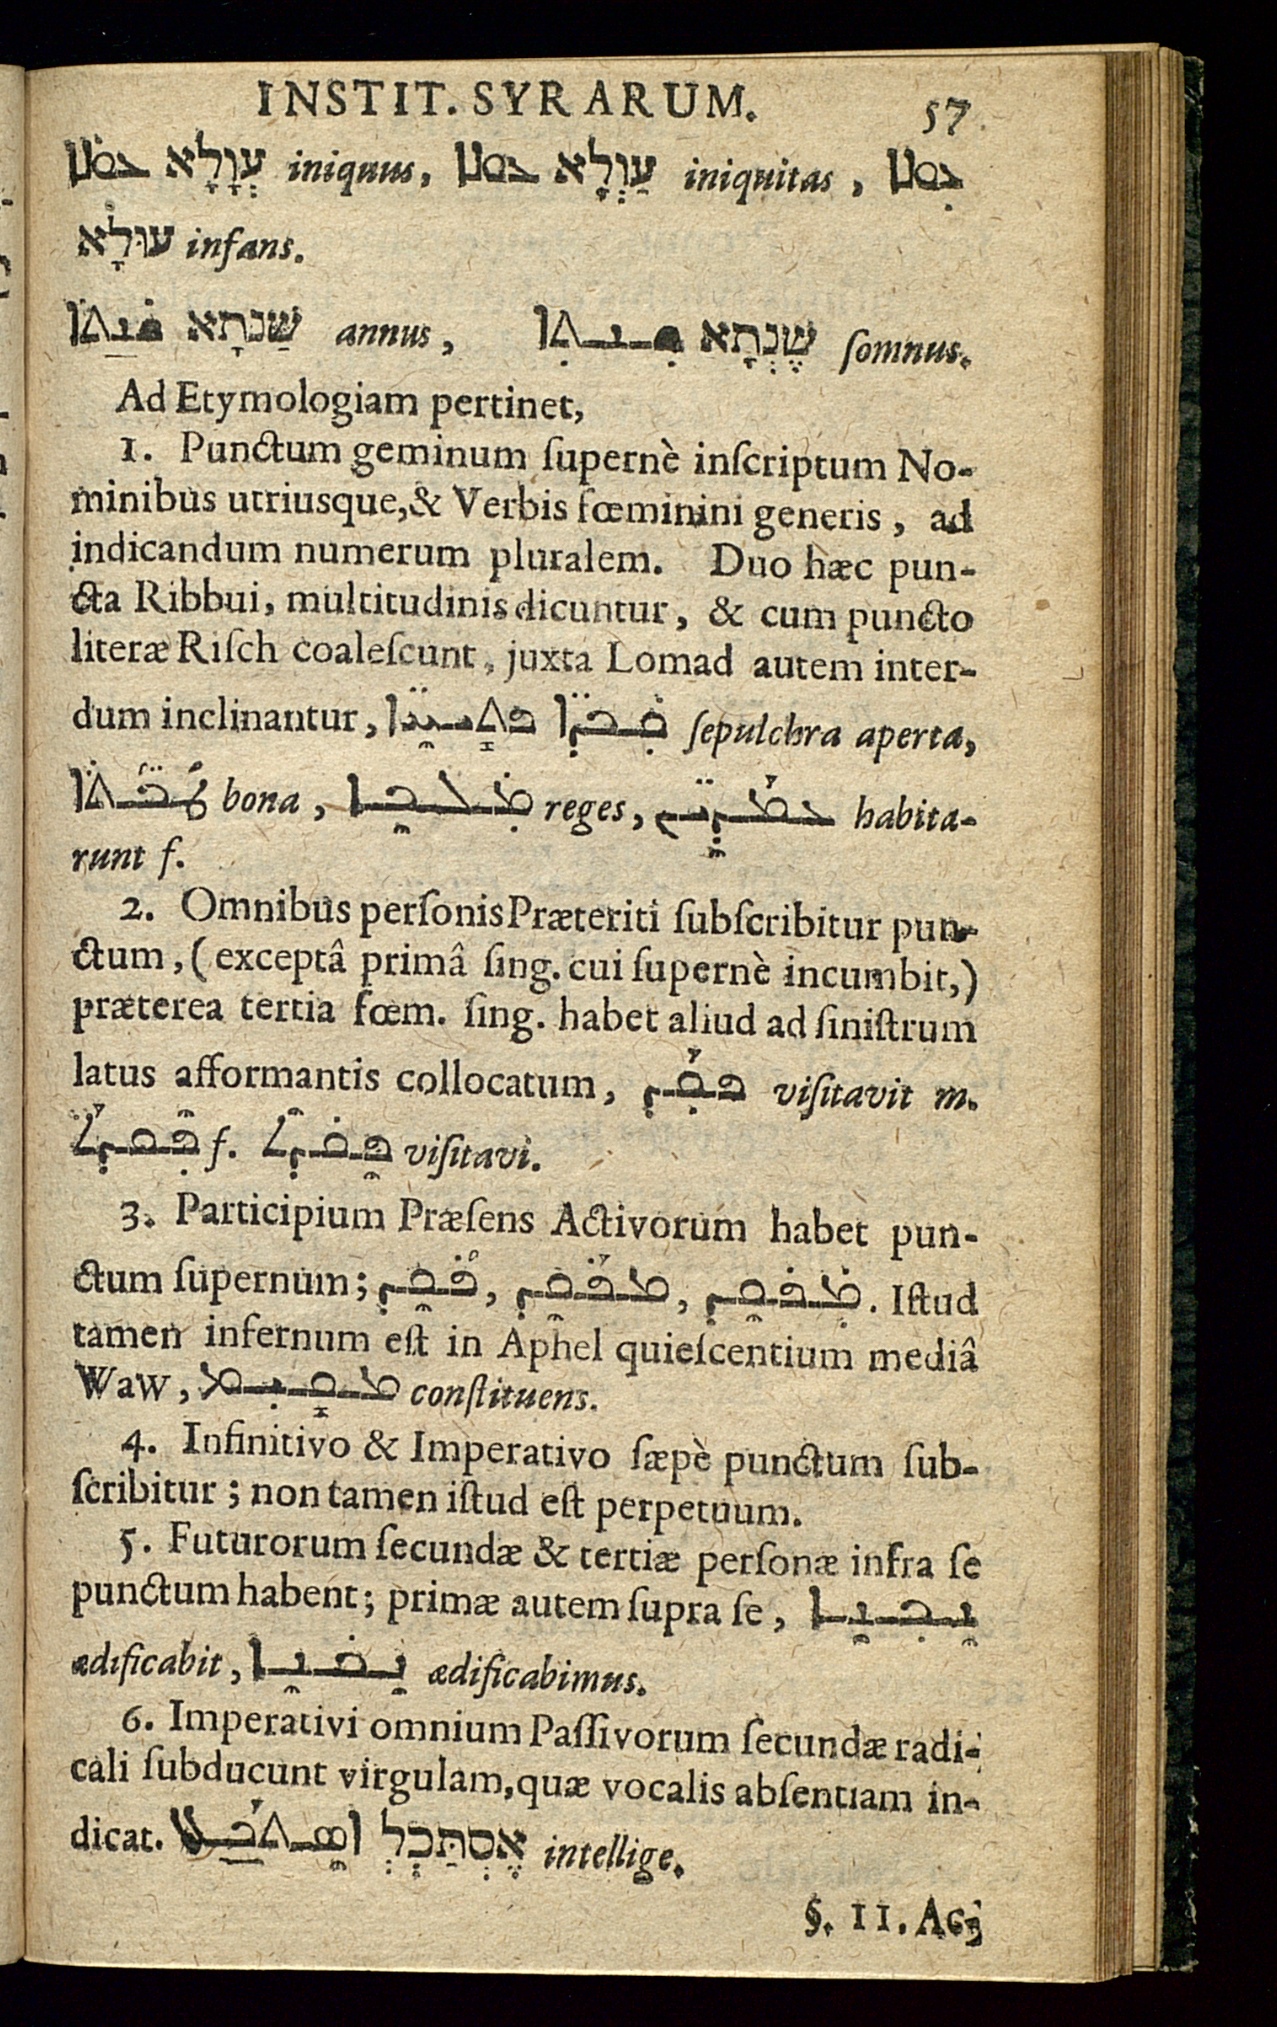 INSTIT. SYRARUM. 57
ܥܘܠܐ עֲוָלָא iniquus, ܥܘܠܐ עַוְלָא iniquitas, ܥܘܠܐ
עוּלָא infans.
ܫܢܬܐ שַׁנתָא annus, ܫܢܬܐ שֶׁנְתָא somnus.
Ad Etymologiam pertinet,
1. Punctum geminum supernè inscriptum No-
minibus utriusque, & Verbis fœminini generis, ad
indicandum numerum pluralem. Duo hæc pun-
cta Ribbui, multitudinis dicuntur, & cum puncto
literæ Risch coalescunt, juxta Lomad autem inter-
dum inclinantur, sepulchra aperta,
bona, reges, habita-
runt f.
2. Omnibus personis Præteriti subscribitur pun-
ctum, (exceptâ primâ sing. cui supernè incumbit,)
præterea tertia fœm. sing. habet aliud ad sinistrum
latus afformantis collocatum, visitavit m.
f. visitavi.
3. Participium Præsens Activorum habet pun-
ctum supernum; Istud
tamen infernum est in Aphel quiescentium mediâ
Waw, constituens.
4. Infinitivo & Imperativo sæpè punctum sub-
scribitur; non tamen istud est perpetuum.
5. Futurorum secundæ & tertiæ personæ infra se
punctum habent; primæ autem supra se,
ædificabit, ædificabimus.
6. Imperativi omnium Passivorum secundæ radi-
cali subducunt virgulam, quæ vocalis absentiam in-
dicat. אֶסְתַּכְלְ intellige.
§. II. Ac-